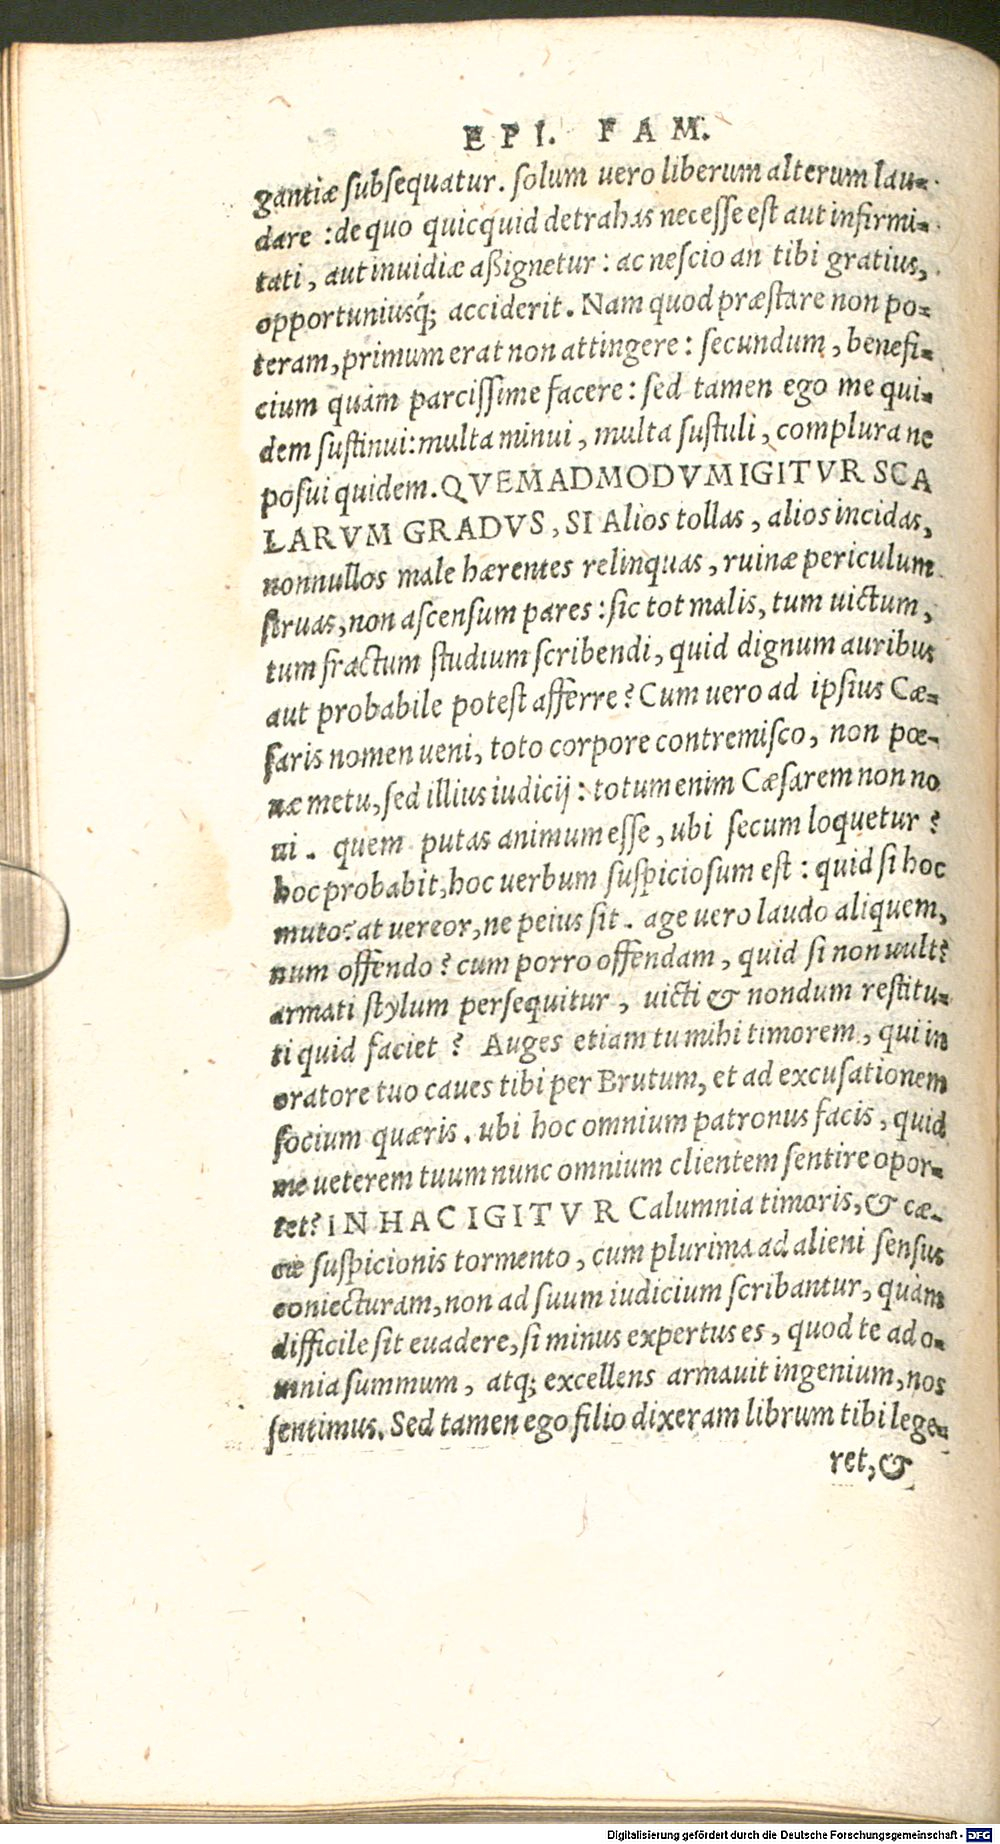 EPI. FAM.
gantiæ ſubſequatur. ſolum uero liberum alterum lau=
dare : de quo quicquid detrahas neceſſe eſt aut infirmi=
tati, aut inuidiæ aßignetur : ac neſcio an tibi gratius,
opportuniusq́; acciderit. Nam quod præſtare non po=
teram, primum erat non attingere : ſecundum, benefi=
cium quàm parciſſime facere : ſed tamen ego me qui=
dem ſuſtinui: multa minui, multa ſuſtuli, complura ne
poſui quidem. QVEMADMODVM IGITVR SCA
LARVM GRADVS, SI Alios tollas, alios incidas,
nonnullos male hærentes relinquas, ruinæ periculum
ſtruas, non aſcenſum pares : ſic tot malis, tum uictum,
tum fractum ſtudium ſcribendi, quid dignum auribus
aut probabile poteſt afferre? Cum uero ad ipſius Cæ=
ſaris nomen ueni, toto corpore contremiſco, non pœ=
næ metu, ſed illius iudicij : totum enim Cæſarem non no
ui. quem putas animum eſſe, ubi ſecum loquetur?
hoc probabit, hoc uerbum ſuſpicioſum eſt : quid ſi hoc
muto? at uereor, ne peius ſit. age uero laudo aliquem,
num offendo? cum porro offendam, quid ſi non uult?
armati ſtylum perſequitur, uicti & nondum reſtitu=
ti quid faciet? Auges etiam tu mihi timorem, qui in
oratore tuo caues tibi per Brutum, et ad excuſationem
ſocium quæris. ubi hoc omnium patronus facis, quid
me ueterem tuum nunc omnium clientem ſentire opor=
tet? IN HAC IGITVR Calumnia timoris, & cæ=
cæ ſuſpicionis tormento, cum plurima ad alieni ſenſus
coniecturam, non ad ſuum iudicium ſcribantur, quàm
difficile ſit euadere, ſi minus expertus es, quod te ad o=
mnia ſummum, atq; excellens armauit ingenium, nos
ſentimus. Sed tamen ego filio dixeram librum tibi lege=
ret, &
Digitalisierung gefördert durch die Deutsche Forschungsgemeinschaft - DFG